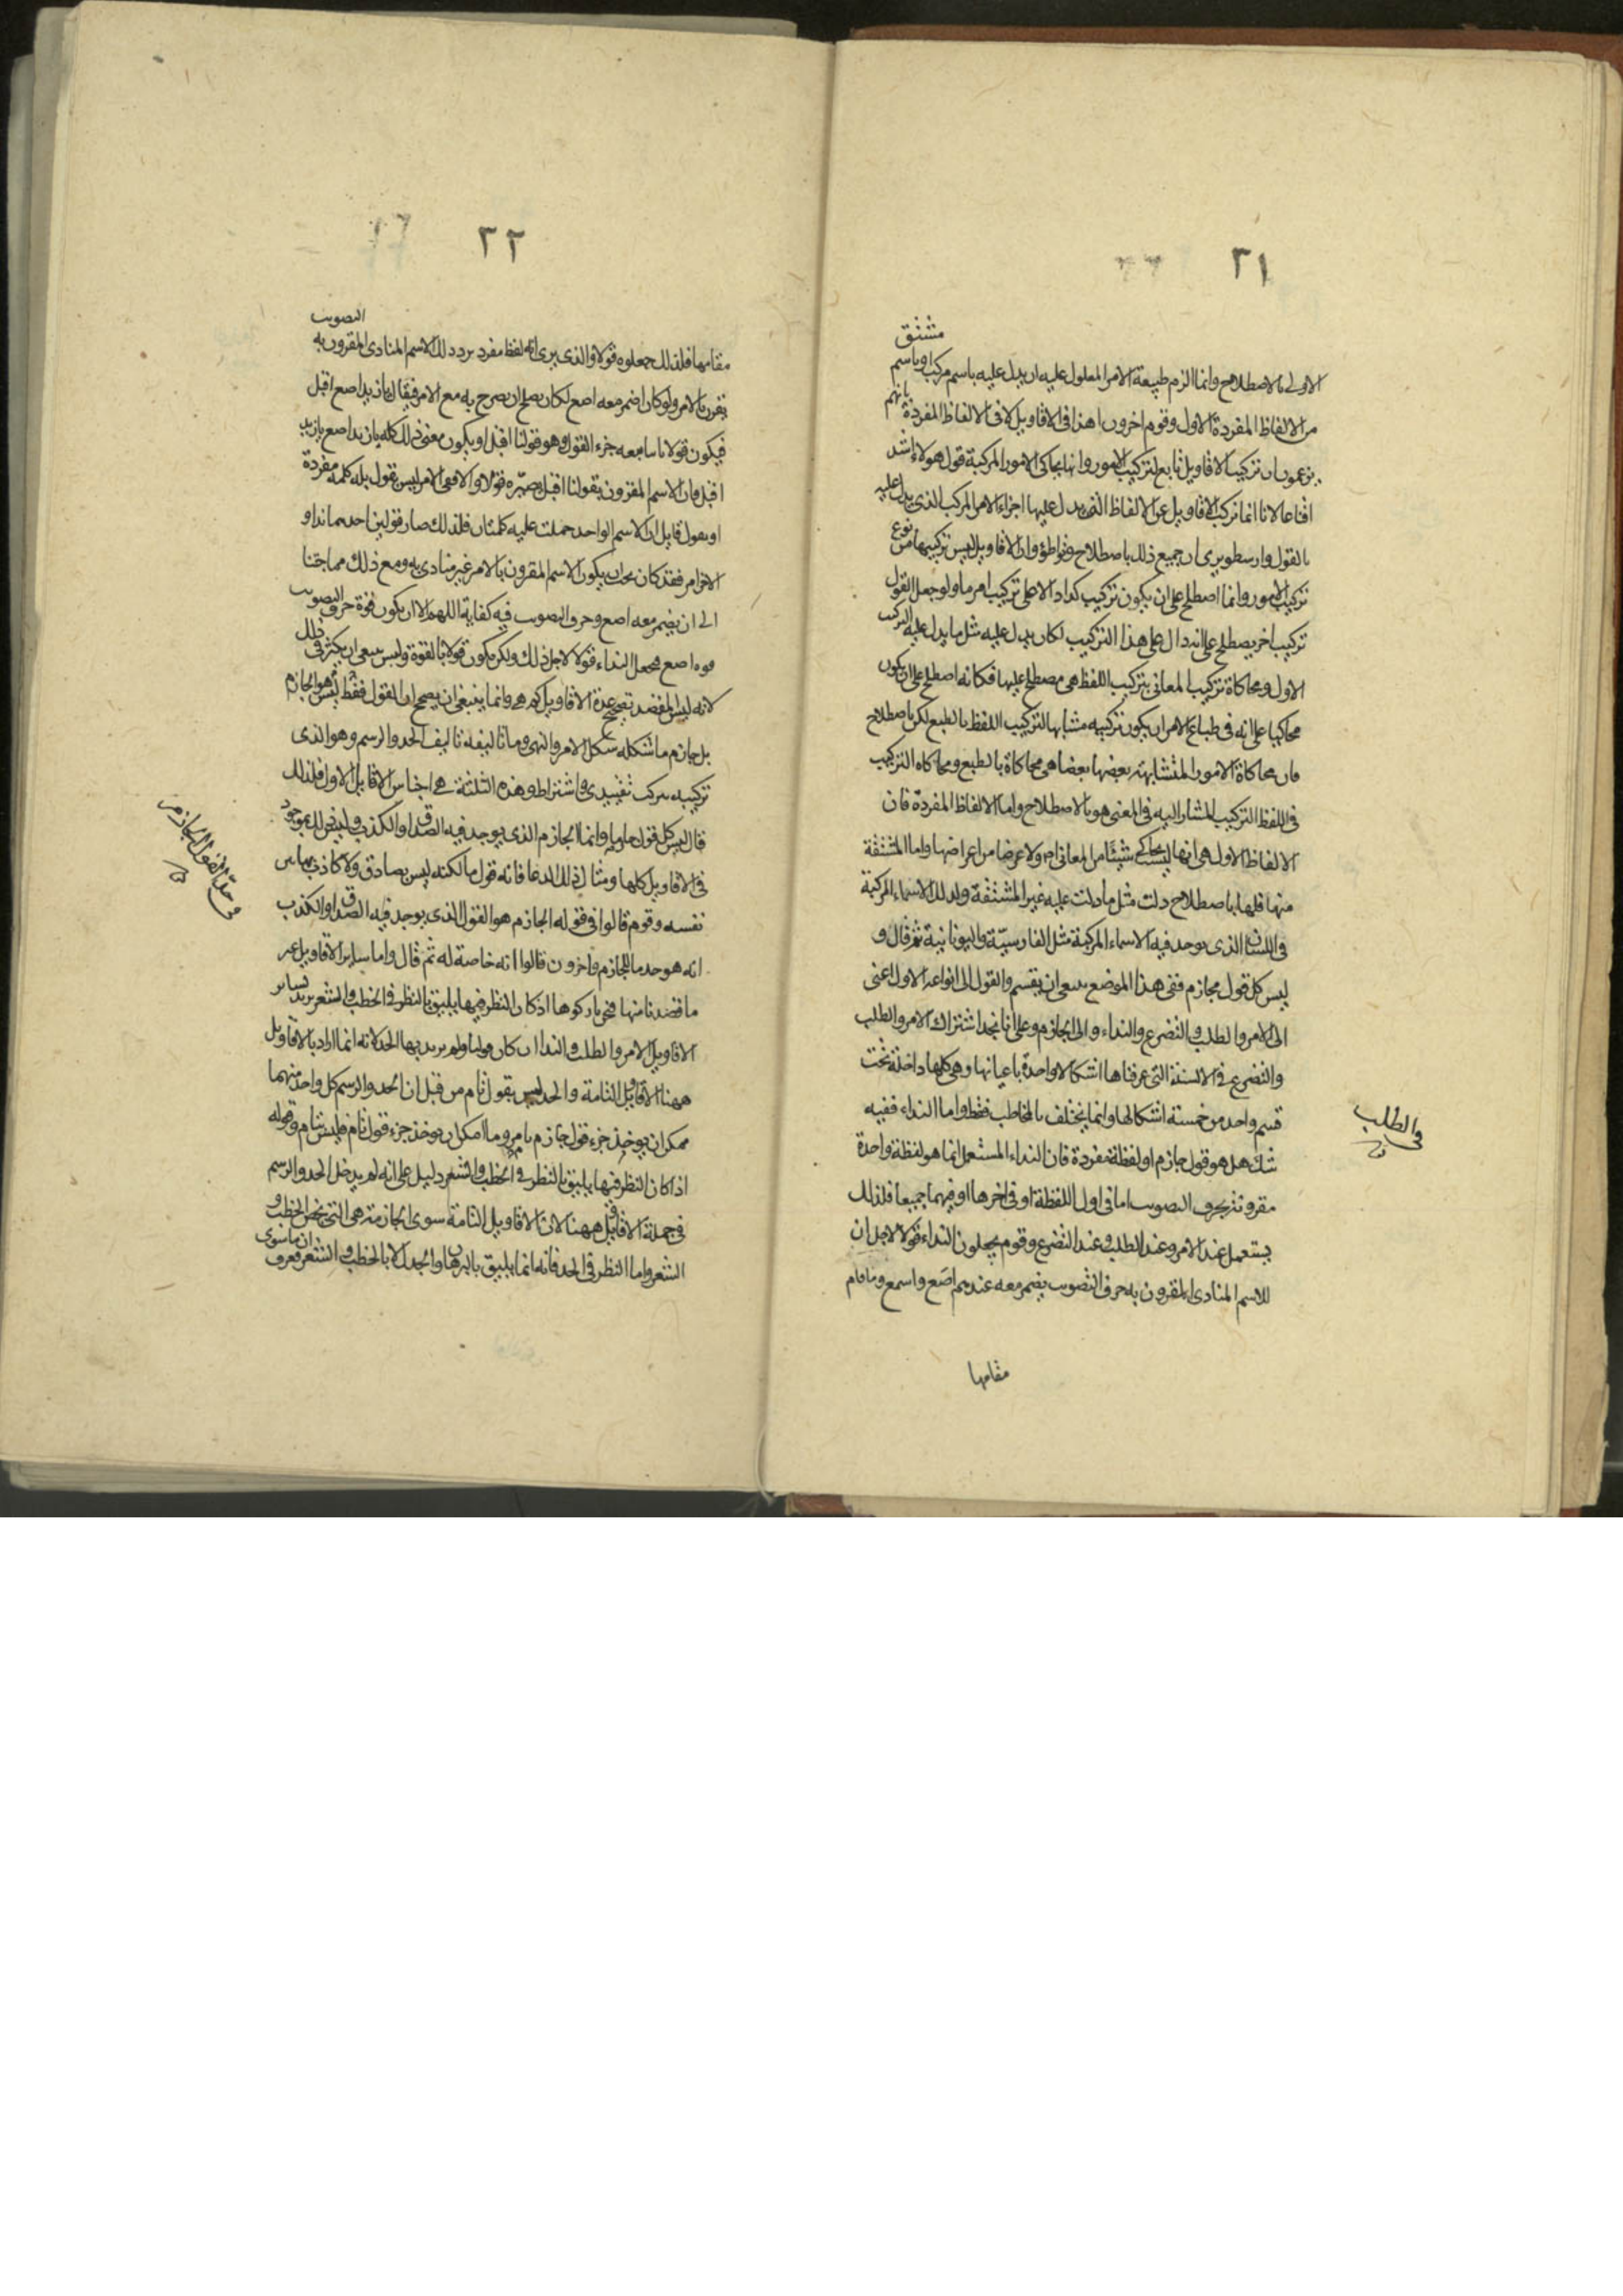 ٣١
مشتق
الاولى بالاصطلاح وانما الزم طبيعة الامر المدلول عليه ان يدل عليه باسم مركب او باسم
من الالفاظ المفردة الاول وقوم اخرون هذا في الاقاويل لا في الالفاظ المفردة فانهم
يزعمون ان تركيب الاقاويل تابع لتركيب الامور وانها يحاكى الامور المركبة قول هولاء اشد
اقناعا لانا انما نركب الاقاويل عن الالفاظ التى يدل عليها اجزاء الامر المركب الذى يدل عليه
بالقول وارسطو يرى ان جميع ذلك باصطلاح وتواطؤ وان الاقاويل ليس تركيبها من نوع
تركيب الامور وانما اصطلح على ان يكون تركيب كذا دالا على تركيب امر ما ولو جعل القول
تركيب اخر يصطلح على انه دال على هذا التركيب لكان يدل عليه مثل ما يدل عليه التركيب
الاول ومحاكاة تركيب المعانى بتركيب اللفظ هى مصطلح عليها فكانه اصطلح على ان يكون
محاكيا على انه في طباع الامر ان يكون تركيبه مشابها لتركيب اللفظ بالطبع لكن باصطلاح
فان محاكاة الامور المتشابهة بعضها بعضا هى محاكاة بالطبع ومحاكاه التركيب
في اللفظ التركيب المشار اليه في المعنى هو بالاصطلاح واما الالفاظ المفردة فان
الالفاظ الاول هى انها ليست يحاكى شيئا من المعانى ولا عرضا من اعراضها واما المشتقة
منها فلها باصطلاح دلت مثل ما دلت عليه غير المشتقة ولذلك الاسماء المركبة
في اللسان الذى يوجد فيه الاسماء المركبة مثل الفارسية واليونانية ثم قال و
ليس كل قول بجازم ففى هذا الموضع ينبغى ان يقسم القول الى انواعه الاول اعنى
الى الامر والطلب والتضرع والنداء والى الجازم وعلى انا نجد اشتراك الامر والطلب
والتضرع في الالسنة التى عرفناها اشكالا واحدة باعيانها وهى كلها داخلة تحت
قسم واحد من خمسة اشكالها وانما يختلف بالمخاطب فقط واما النداء ففيه
شك هل هو قول جازم او لفظة مفردة فان النداء المستعمل انما هو لفظة واحدة
مقرونة بحرف التصويت اما في اول اللفظة او في اخرها او فيهما جميعا فلذلك
يستعمل عند الامر وعند الطلب وعند التضرع وقوم يجعلون النداء قولا لاجل ان
للاسم المنادى المقرون به حرف التصويت يضمر معه عندهم اصغ واسمع وما قام
مقامها
في الطلب
٣٢
التصويت
مقامها فلذلك جعلوه قولا والذى يرى انه لفظ مفرد يرد ذلك الاسم المنادى المقرون به
يقرن بالامر ولو كان اضمر معه اصغ لكان يصلح ان يصرح به مع الامر فيقال يا زيد اصغ اقبل
فيكون قولا تاما معه جزء القول وهو قولنا اقبل او يكون معنى ذلك كله يا زيد اصغ يا زيد
اقبل فان الاسم المقرون بقولنا اقبل صيره قولا والا فمع الامر ليس نقول بل كلمة مفردة
او يقول قايل ان الاسم الواحد حملت عليه كلمتان فلذلك صار قولين احدهما نداء و
الاخر امر فقد كان يجب ان يكون الاسم المقرون بالامر غير منادى به ومع ذلك مما حاجتنا
الى ان يضمر معه اصغ وحرف التصويت فيه كفاية اللهم الا ان يكون قوة حرف التصويت
قوة اصغ فجعل النداء قولا لاجل ذلك ولكن يكون قولا بالقوة وليس ينبغى ان يكثر في ذلك
لانه ليس المقصد تصحيح عدة الاقاويل كم هى وانما ينبغى ان يصحح ان القول فقط ليس هو الجازم
بل جازم ما شكله شكل الامر والنهى وما تاليفه تاليف الحد والرسم وهو الذى
تركيبه تركيب تقييدى واشتراط وهذه الثلثة هى اجناس الاقاويل الاول فلذلك
قال ليس كل قول جازما وانما الجازم الذى يوجد فيه الصدق او الكذب وليس ذلك بموجود
في الاقاويل كلها ومثال ذلك الدعا فانه قول ما لكنه ليس بصادق ولا كاذب
نفسه وقوم قالوا في قوله الجازم هو القول الذى يوجد فيه الصدق او الكذب
انه هو حد ما للجازم واخرون قالوا انه خاصة له ثم قال واما ساير الاقاويل غير
ما قصدنا منها فنحن تاركوها اذ كان النظر فيها يليق بالنظر في الخطب والشعر يريد بساير
الاقاويل الامر والطلب والنداء ان كان قولا ولم يريد بها الحد لانه انما اراد بالاقاويل
ههنا الاقاويل التامة والحد ليس بقول تام من قبل ان الحد والرسم كل واحد منهما
ممكن ان يوخذ جزء قول جازم تام وما امكن ان يوخذ جزء قول تام فليس بتام وقوله
اذ كان النظر فيها يليق بالنظر في الخطب والشعر دليل على انه لم يدخل الحد والرسم
في جملة الاقاويل ههنا لان الاقاويل التامة سوى الجازمة هى التى تخص الخطب و
الشعر واما النظر في الحد فانه انما يليق بالبرهان والجدل لا بالخطب والشعر فعرف ان ما سوى
في حد القول الجازم